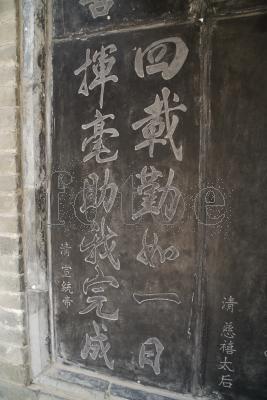 四載勤如一日
揮毫助我完成
清 宣統帝
清 慈禧太后